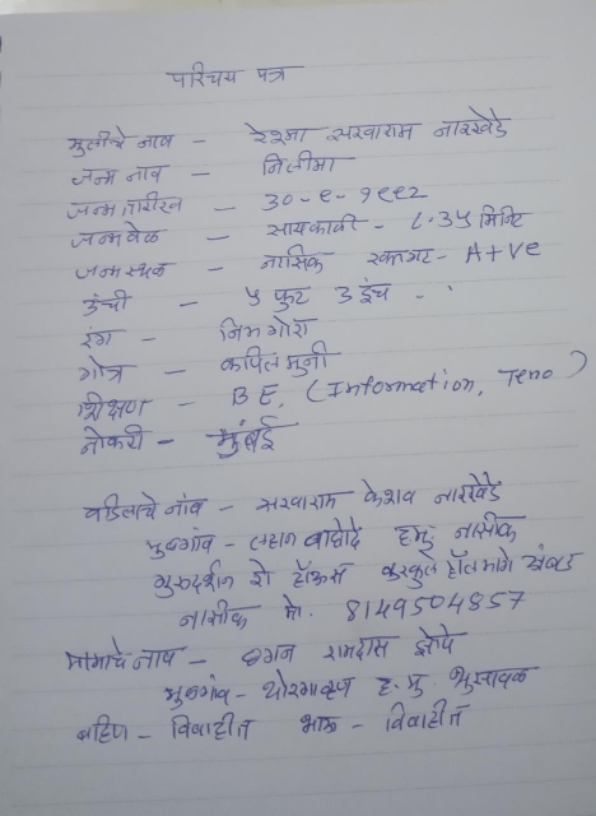 परिचय पत्र
मुलीचे नाव - रेश्मा सखाराम नारखेडे
जन्म नाव - निलीमा
जन्म तारीख - ३०-९-१९९२
जन्मवेळ - सायकाळी - ८.३५ मिनिट
जन्मस्थळ - नासिक रक्तगट - A+ve
उंची - ५ फुट ३ इंच
रंग - निमगोरा
गोत्र - कपिल मुनी
शिक्षण - BE, (Information, Teno)
नोकरी - मुंबई
वडिलाचे नांव - सखाराम केशव नारखेडे
मुळगांव - लहान वाघोदे हमु. नासीक
गुरुदर्शन रो हॉऊस हॉलमागे अंबड
नासीक मो. 8149504857
मामाचे नाव - छगन रामदास झोपे
मुळगांव - थोरगव्हाण ह.मु. भुसावळ
बहिण - विवाहीत भाऊ - विवाहीत